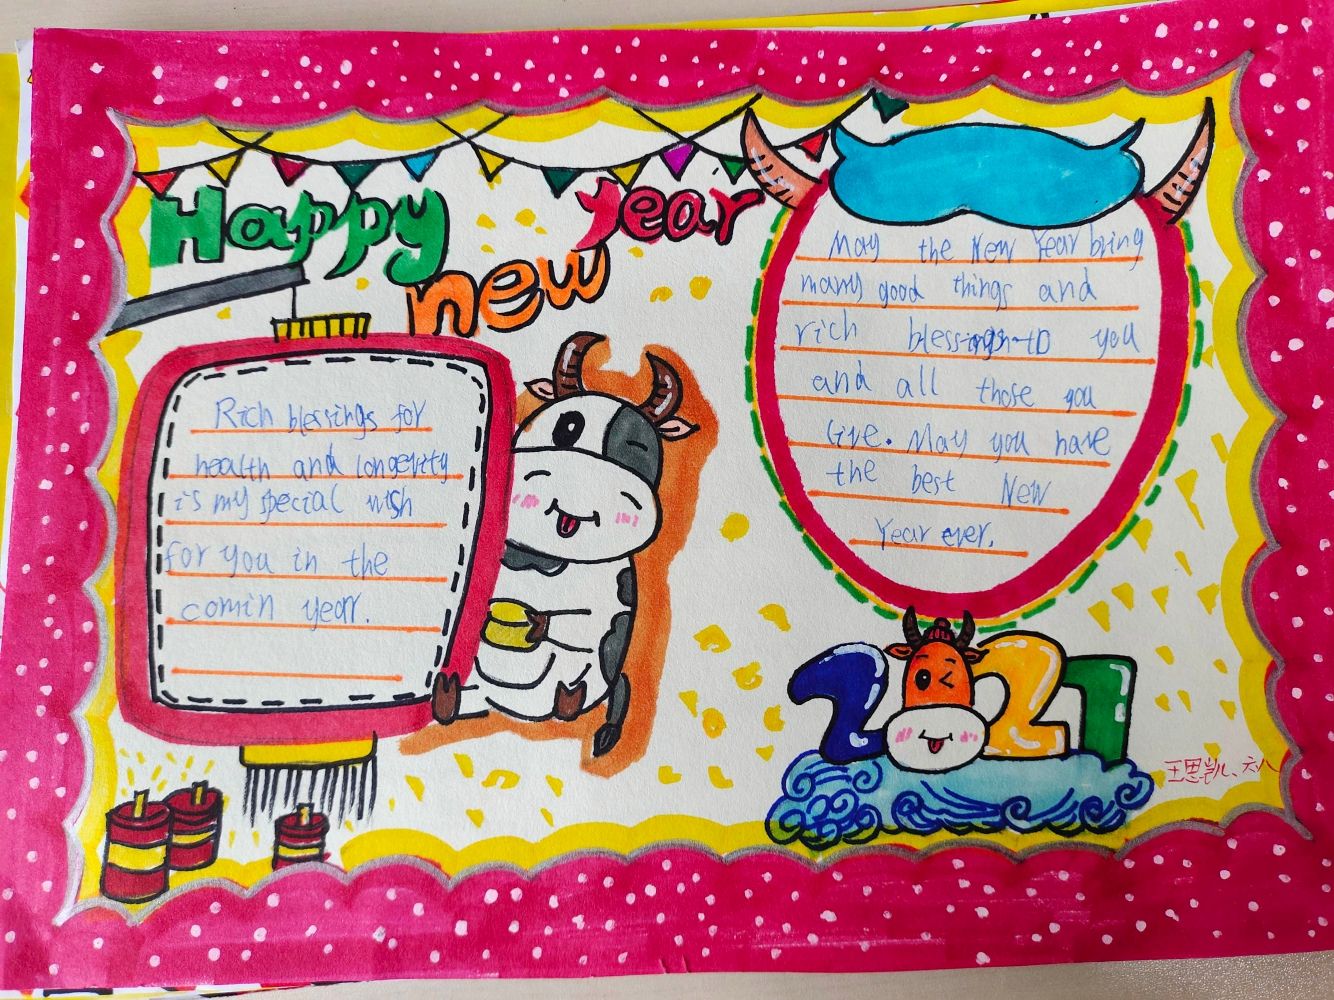 Happy
new
year
Rich blessings for
health and longevity
is my special wish
for you in the
comin year.
May the New Year bring
many good things and
rich blessings to you
and all those you
Live. May you have
the best New
Year ever.
2021
王思凯、六八